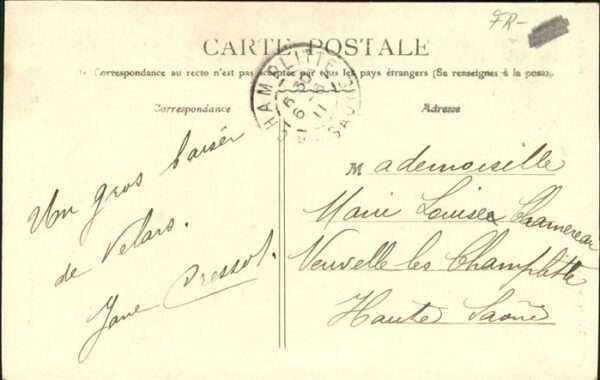 FR-
CARTE POSTALE
La Correspondance au recto n'est pas acceptée par tous les pays étrangers (Se renseignes à la poste)
Correspondance
Adresse
CHAMPLITTE
6 35
6 - 6
11
Un gros baiser
de Velars.
Jane Pressot.
Mademoiselle
Marie Louise Chamereau
Neuvelle les Champlitte
Haute Saône